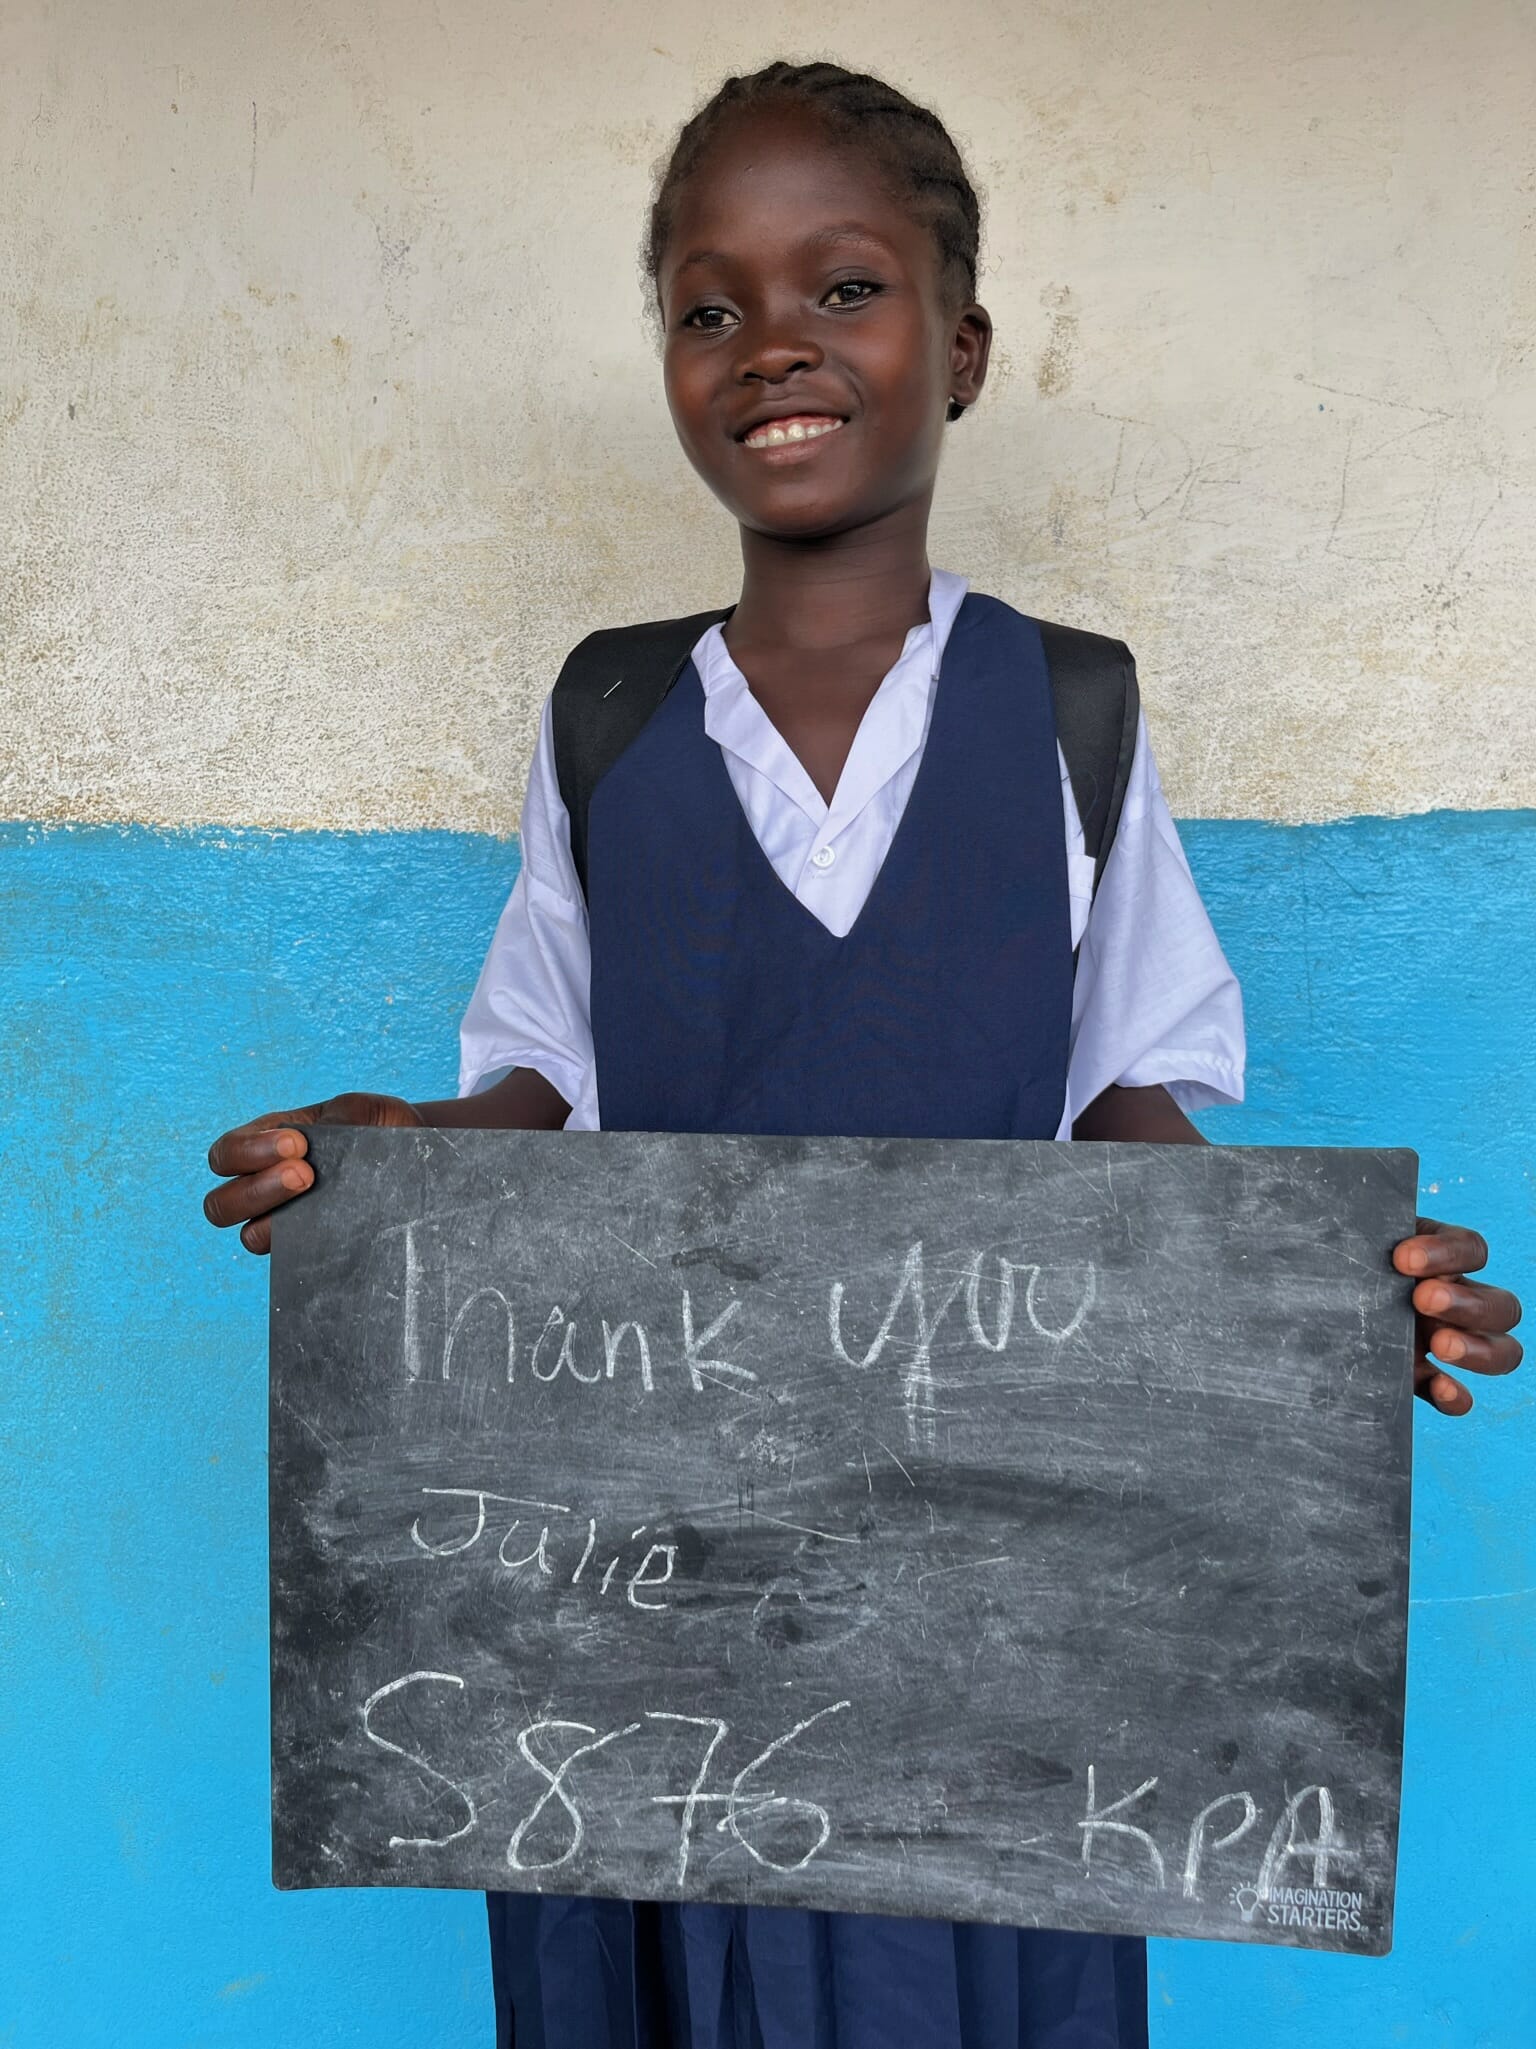 Thank you
Julie
S876 KPA
IMAGINATION
STARTERS